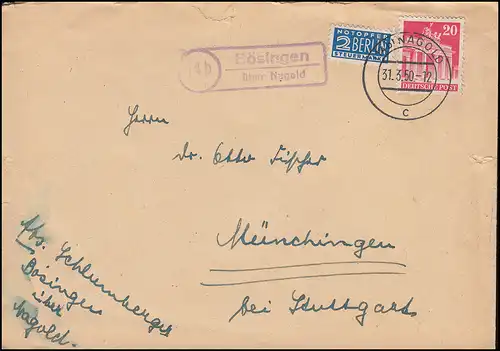 Bösingen
über Nagold
NOTOPFER
2 BERLIN
STEUERMARKE
20
DEUTSCHE POST
NAGOLD
31.3.50-12
c
Herrn
Dr. Otto Fischer
Münchingen
bei Stuttgart
Abs. Schlumberger
Bösingen
über
Nagold.